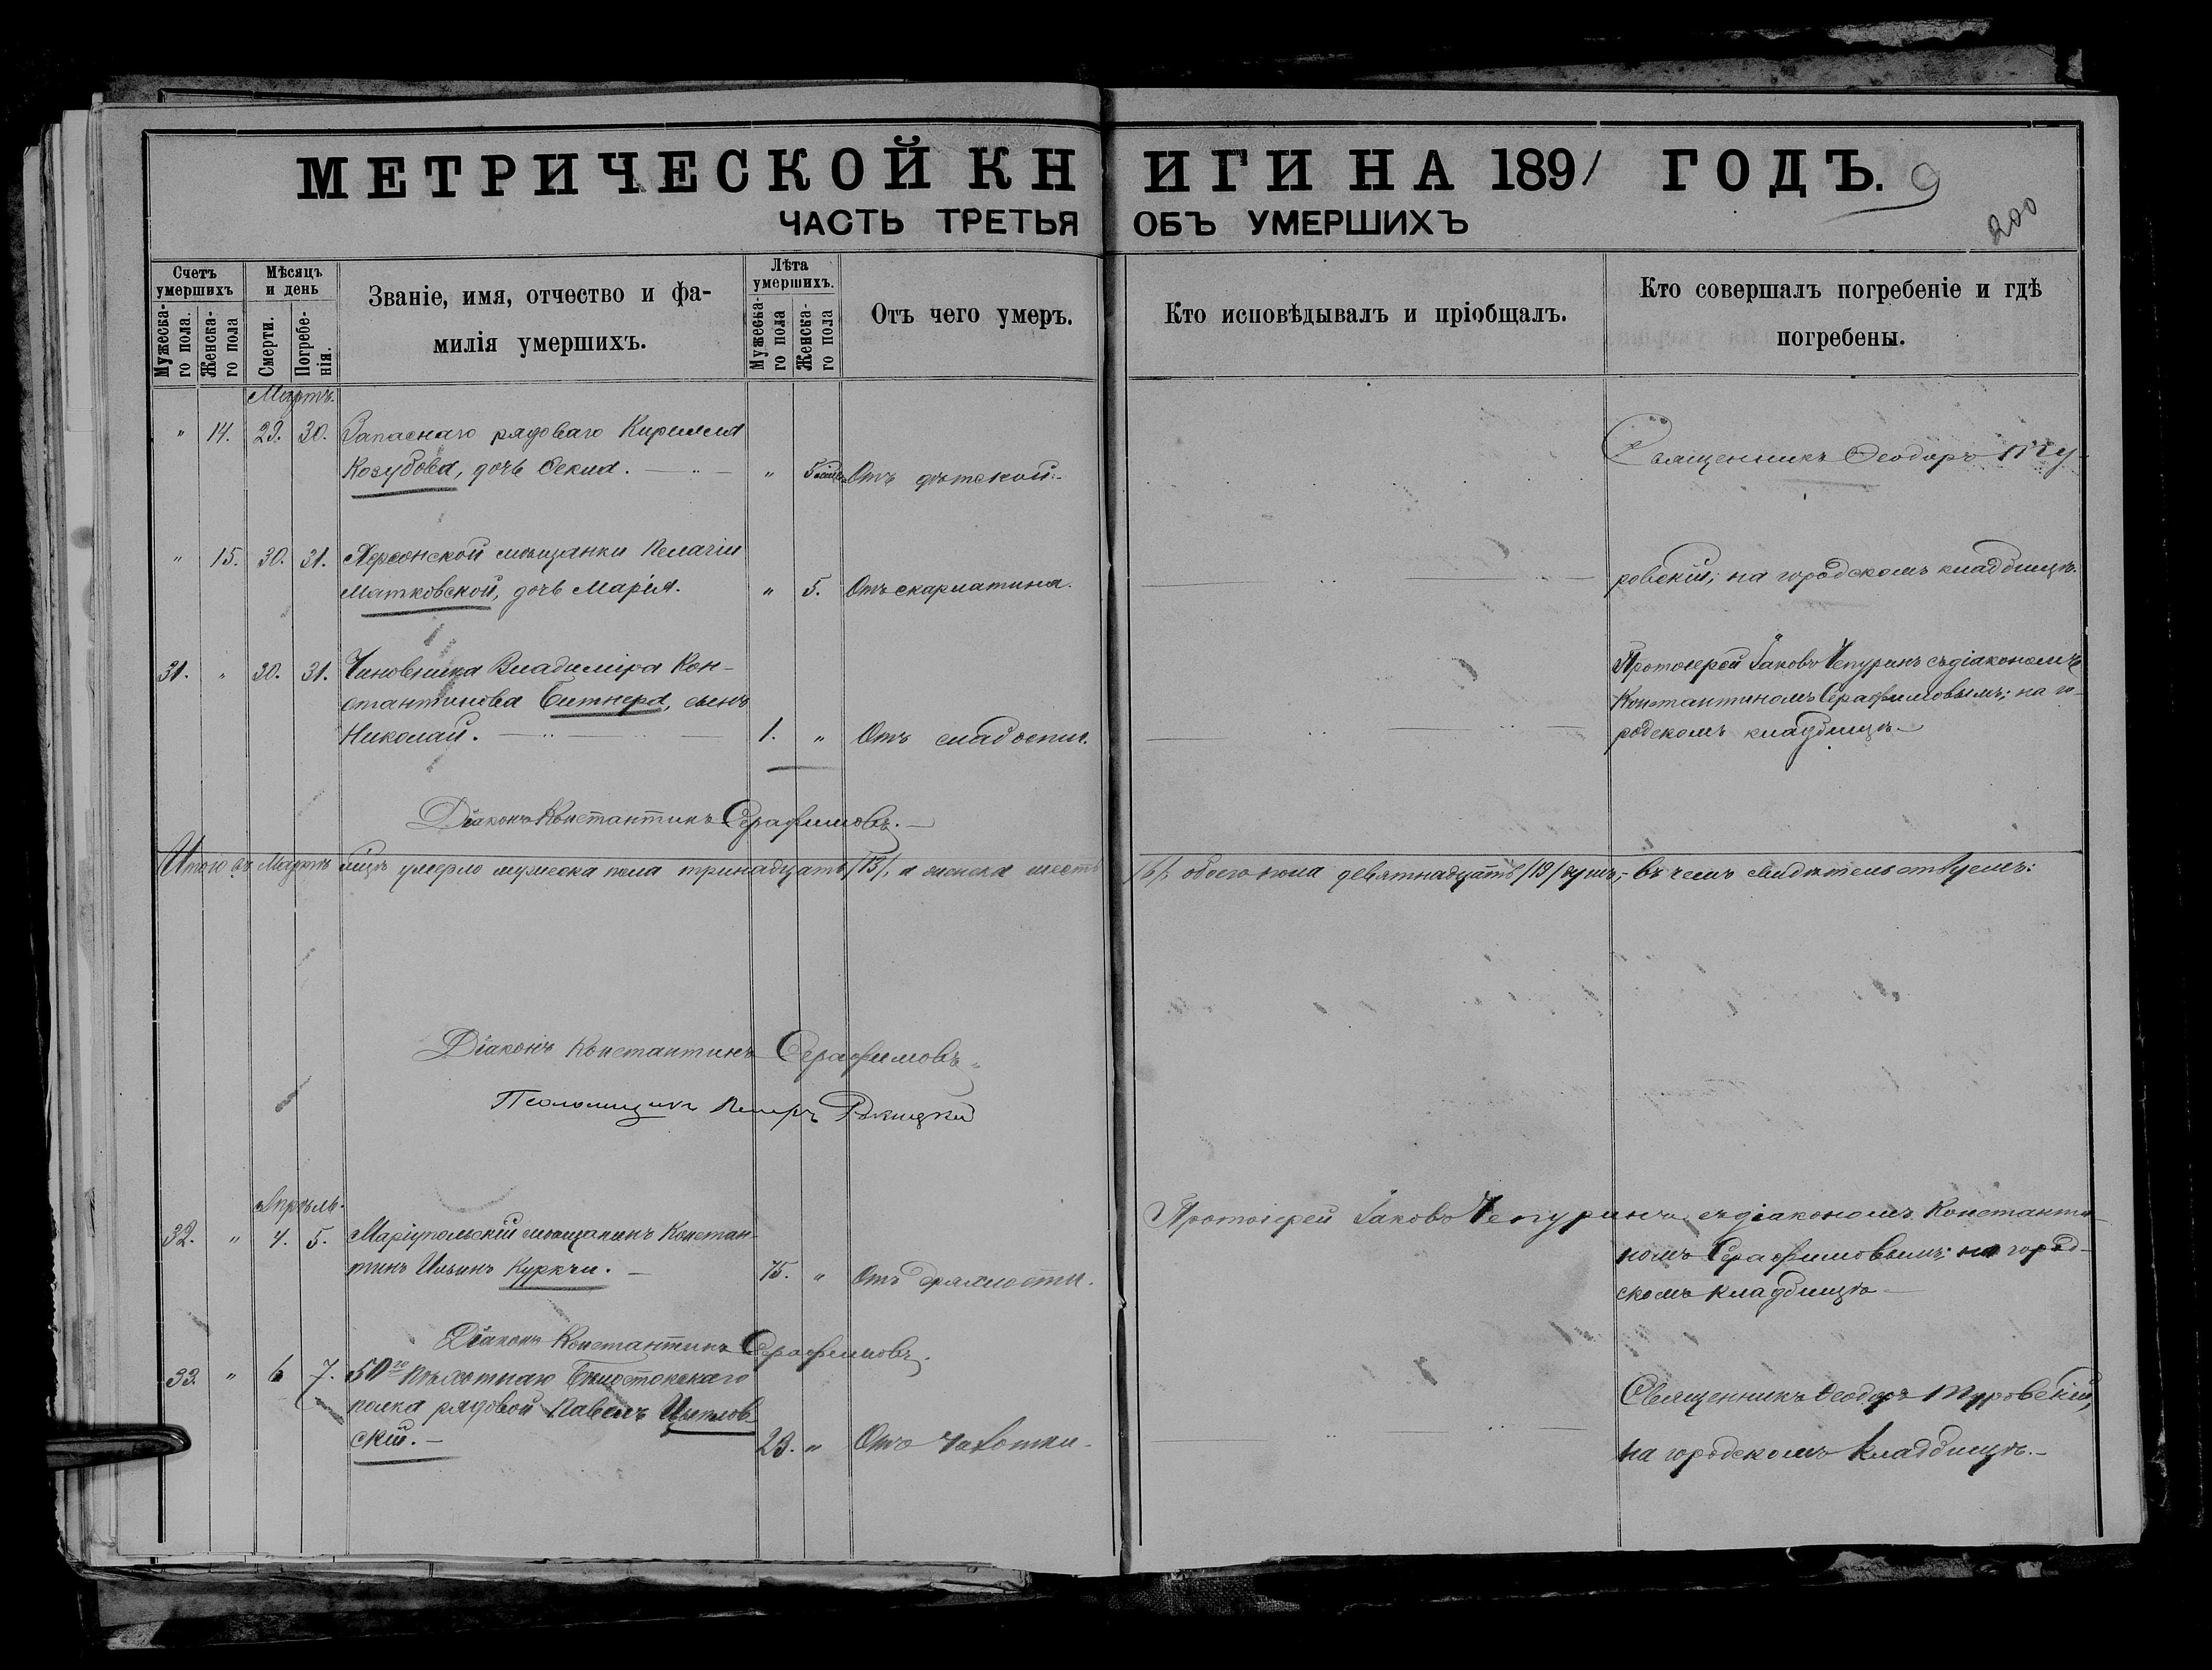 МЕТРИЧЕСКОЙ КНИГИ НА 1891 ГОДЪ.
9
ЧАСТЬ ТРЕТЬЯ ОБЪ УМЕРШИХЪ
200
Счетъ умершихъ
Мужеска-го пола.
Женска-го пола
Мѣсяцъ и день
Смерти.
Погребе-нія.
Званіе, имя, отчество и фа-
милія умершихъ.
Лѣта умершихъ.
Мужеска-го пола
Женска-го пола
Отъ чего умеръ.
Кто исповѣдывалъ и пріобщалъ.
Кто совершалъ погребеніе и гдѣ
погребены.
Мартъ.
" 14. 29. 30. Запаснаго рядоваго Кирилла
Козубова, дочь Фекла. " 5 Отъ дѣтской.
Священникъ Ѳеодоръ Ту-
" 15. 30. 31. Херсонской мѣщанки Пелагіи
Матковской, дочь Марія. " 5. Отъ скарлатины.
ровскій; на городскомъ кладбищѣ.
31. " 30. 31. Чиновника Владиміра Кон-
стантинова Битнера, сынъ
Николай. 1. " Отъ слабости.
Протоіерей Іаковъ Чепуринъ съ діакономъ
Константиномъ Серафимовымъ; на го-
родскомъ кладбищѣ.
Діаконъ Константинъ Серафимовъ.
Итого въ Мартѣ мѣсяцѣ умерло мужеска пола тринадцать /13/, а женска шесть /6/, обоего пола девятнадцать /19/ душъ; въ чемъ свидѣтельствуемъ:
Діаконъ Константинъ Серафимовъ.
Псаломщикъ Петръ Рокицкій
Апрѣль.
32. " 4. 5. Маріупольскій мѣщанинъ Констан-
тинъ Ильинъ Куркчи. 75. " Отъ дряхлости.
Протоіерей Іаковъ Чепуринъ съ діакономъ Константи-
номъ Серафимовымъ; на город-
скомъ кладбищѣ
Діаконъ Константинъ Серафимовъ.
33. " 6 7. 50го Пѣхотнаго Бѣлостокскаго
полка рядовой Павелъ Цыплов-
скій. 23. " Отъ чахотки.
Священникъ Ѳеодоръ Туровскій,
на городскомъ кладбищѣ.